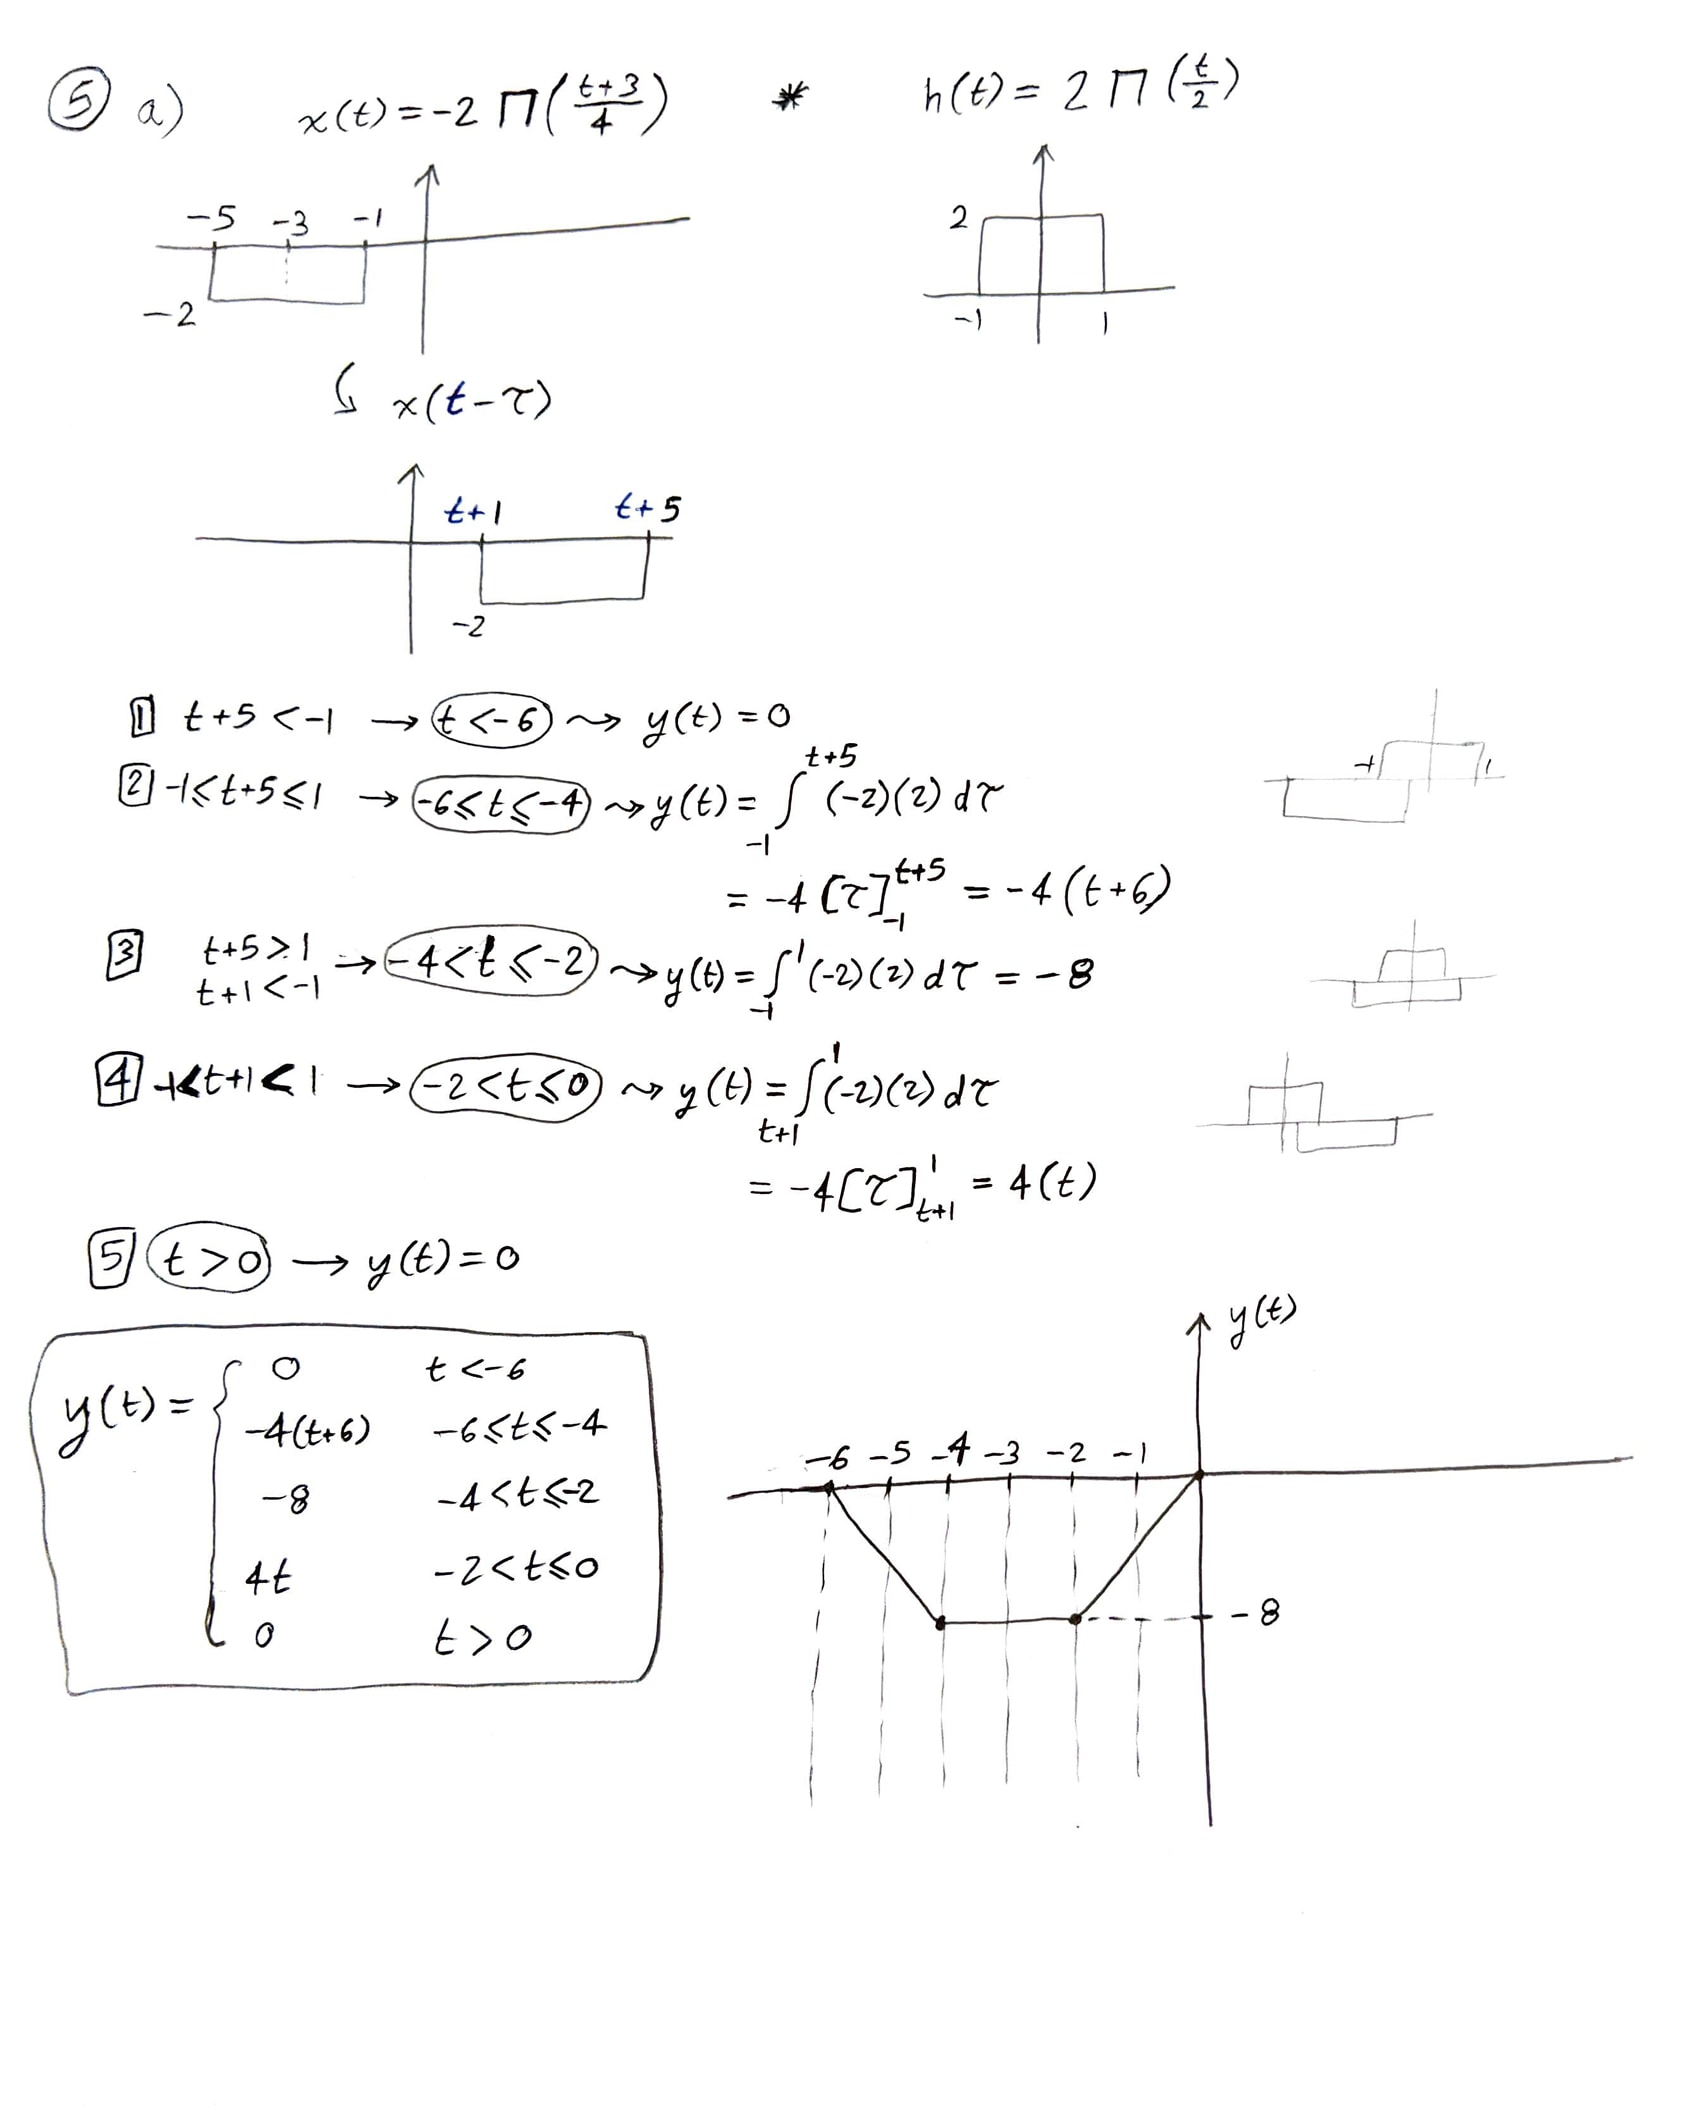 ⑤ a) x(t) = -2 Π((t+3)/4) * h(t) = 2 Π(t/2)
-5 -3 -1
-2
2
-1 1
x(t-τ)
t+1 t+5
-2
1 t+5 < -1 → t < -6 ⇝ y(t) = 0
2 -1 ≤ t+5 ≤ 1 → -6 ≤ t ≤ -4 ⇝ y(t) = ∫_{-1}^{t+5} (-2)(2) dτ
-1 1
= -4 [τ]_{-1}^{t+5} = -4 (t+6)
3 t+5 > 1
t+1 < -1 → -4 < t ≤ -2 ⇝ y(t) = ∫_{-1}^{1} (-2)(2) dτ = -8
4 -1 < t+1 < 1 → -2 < t ≤ 0 ⇝ y(t) = ∫_{t+1}^{1} (-2)(2) dτ
= -4 [τ]_{t+1}^{1} = 4(t)
5 t > 0 → y(t) = 0
y(t) = {
0 t < -6
-4(t+6) -6 ≤ t ≤ -4
-8 -4 < t ≤ -2
4t -2 < t ≤ 0
0 t > 0
y(t)
-6 -5 -4 -3 -2 -1
-8